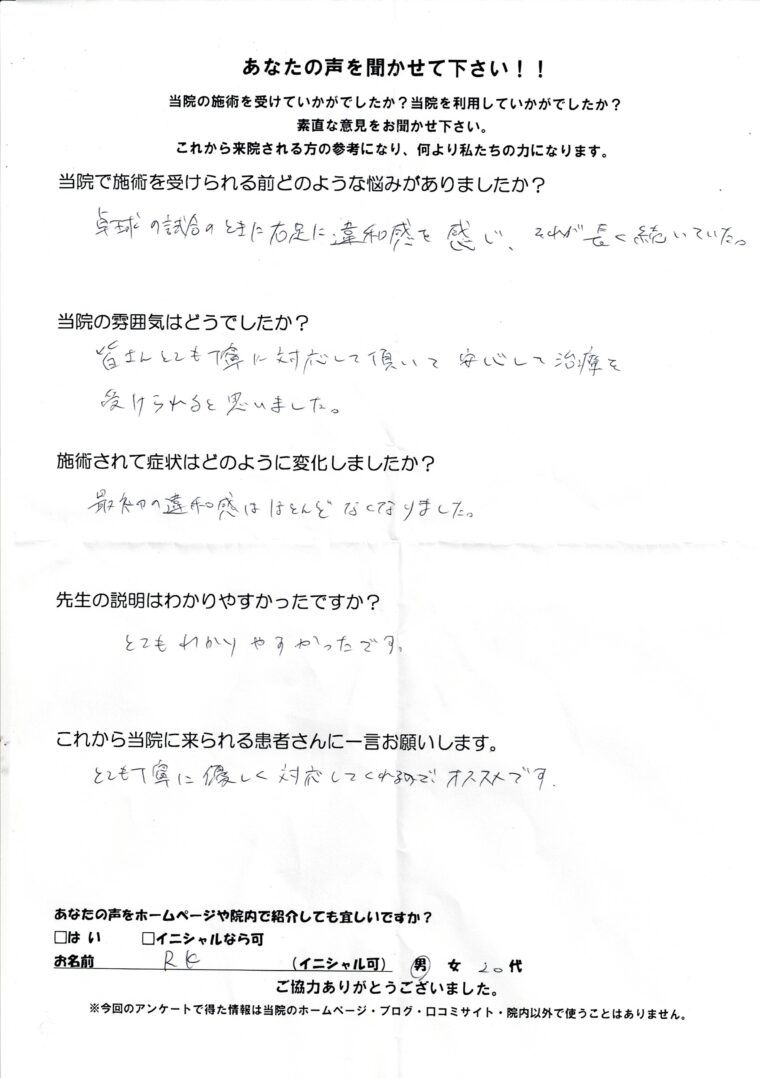 あなたの声を聞かせて下さい！！
当院の施術を受けていかがでしたか？当院を利用していかがでしたか？
素直な意見をお聞かせ下さい。
これから来院される方の参考になり、何より私たちの力になります。
当院で施術を受けられる前どのような悩みがありましたか？
卓球の試合のときに右足に違和感を感じ、それが長く続いていた。
当院の雰囲気はどうでしたか？
皆さんとても丁寧に対応して頂いて安心して治療を
受けられると思いました。
施術されて症状はどのように変化しましたか？
最初の違和感はほとんどなくなりました。
先生の説明はわかりやすかったですか？
とてもわかりやすかったです。
これから当院に来られる患者さんに一言お願いします。
とても丁寧に優しく対応してくれるので、オススメです.
あなたの声をホームページや院内で紹介しても宜しいですか？
□はい □イニシャルなら可
お名前 RK (イニシャル可) 男 女 20代
ご協力ありがとうございました。
※今回のアンケートで得た情報は当院のホームページ・ブログ・口コミサイト・院内以外で使うことはありません。